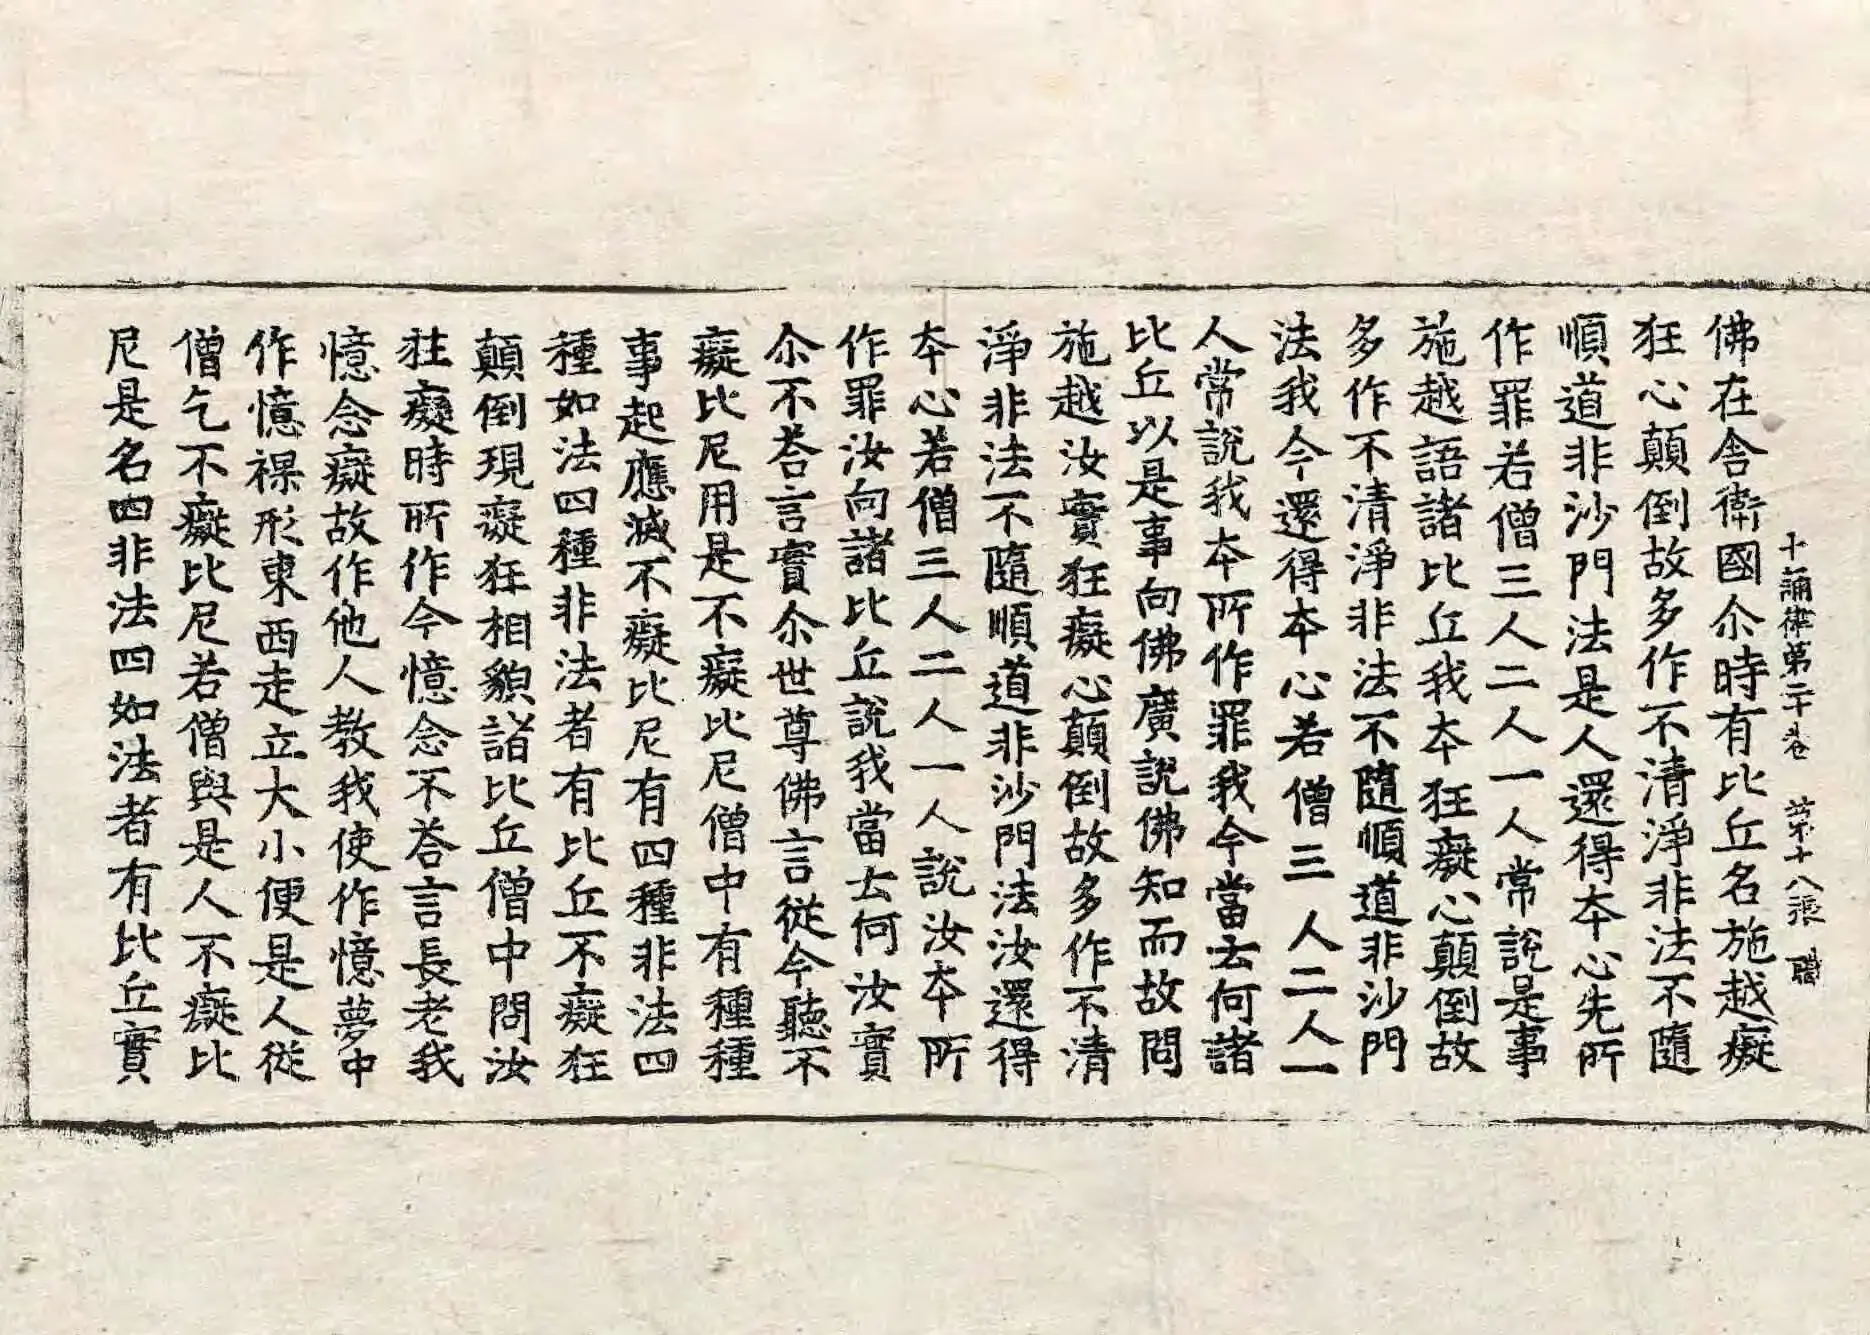 十誦律第二十卷 第十八張 職
佛在舍衛國尒時有比丘名施越癡
狂心顛倒故多作不清淨非法不隨
順道非沙門法是人還得夲心先所
作罪若僧三人二人一人常說是事
施越語諸比丘我夲狂癡心顛倒故
多作不清淨非法不隨順道非沙門
法我今還得夲心若僧三人二人一
人常說我夲所作罪我今當云何諸
比丘以是事向佛廣說佛知而故問
施越汝實狂癡心顛倒故多作不清
淨非法不隨順道非沙門法汝還得
夲心若僧三人二人一人說汝夲所
作罪汝向諸比丘說我當云何汝實
尒不荅言實尒世尊佛言從今聽不
癡比尼用是不癡比尼僧中有種種
事起應滅不癡比尼有四種非法四
種如法四種非法者有比丘不癡狂
顛倒現癡狂相貌諸比丘僧中問汝
狂癡時所作今憶念不荅言長老我
憶念癡故作他人教我使作憶夢中
作憶裸形東西走立大小便是人從
僧乞不癡比尼若僧與是人不癡比
尼是名四非法四如法者有比丘實